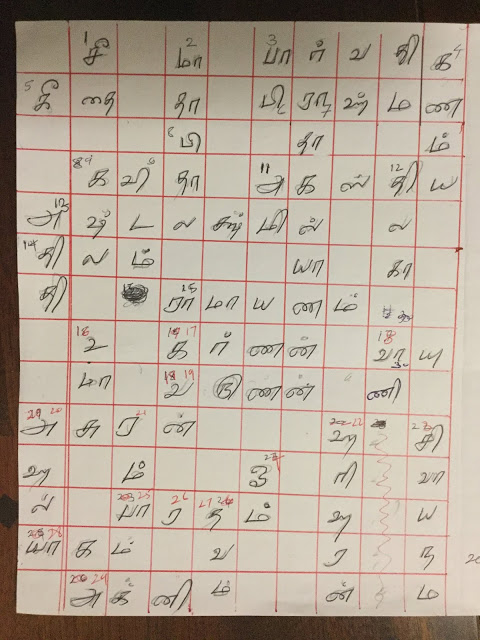 1 சீ 2 மா 3 பா ர் வ தி க 4
5 கீ தை தா பி ரா ஹ் ம ண
6 பி தா ம்
8 9 க வி தா 11 அ க ஸ் 12 தி ய
13 அ ஷ் ட ல க்ஷ் மி ஸ் ல
14 தி ல ம் யா கா
தி 15 ரா மா ய ண ம்
16 உ 17 க ர் ண ன் 18 வா யு
மா 18 19 வ ருண ண ன் ணி
20 அ சு ர 21 ன் 22 ஹ 23 சி
ஹ ம் 24 ஓ ரி வா
ல் 25 பா 26 ர 27 த ம் ஹ ய
28 யா க ம் வ ர ந
29 அ க் னி ம் ன் ம